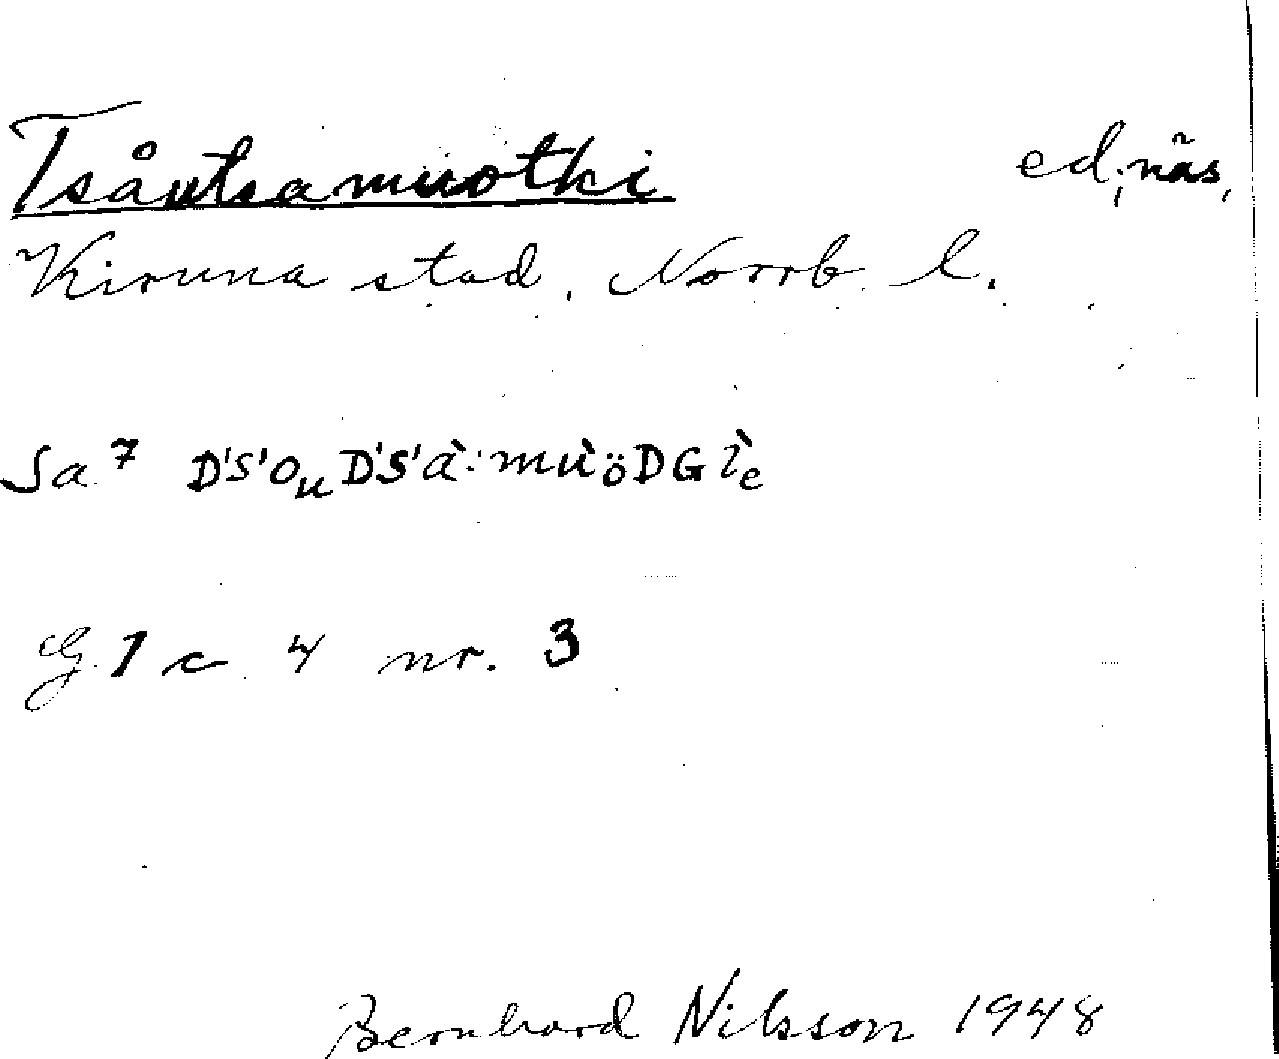 Tsåutsamuotki ed, näs,
Kiruna stad, Norrb. l.
Sa 7 D'S'OuD'S'à:mùöDGìe
G. 1 c 4 nr. 3
Bernhard Nilsson 1948